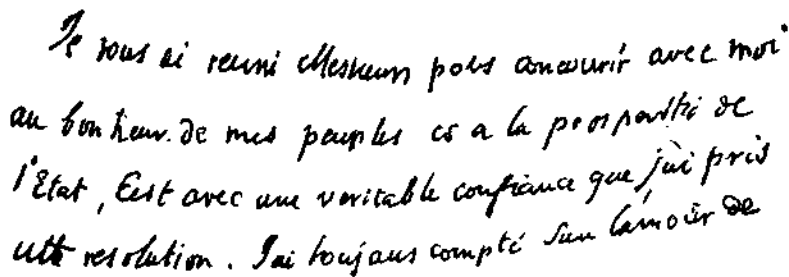 Je vous ai reuni Messieurs pour concourir avec moi
au bonheur. de mes peuples et a la prosperité de
l'Etat, C'est avec une veritable confiance que j'ai pris
cette resolution. J'ai toujours compté sur l'amour de